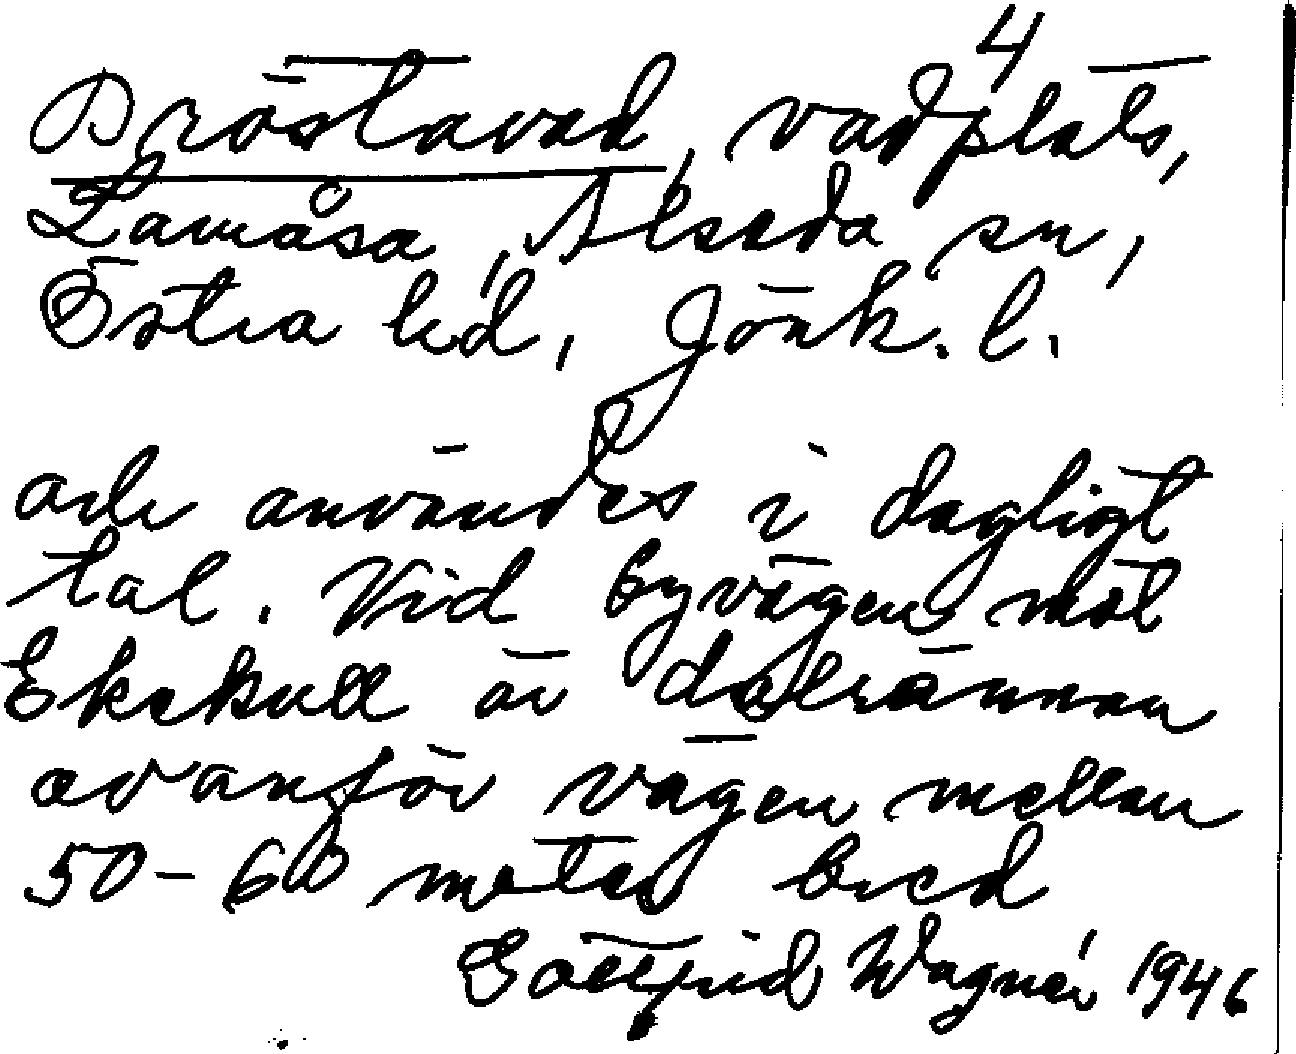 4
Dröstavad, vadplats,
Lamåsa, Alseda sn,
Östra hd, Jönk. l.
och användes i dagligt
tal. Vid byvägen mot
Ekekull är dalrännan
ovanför vägen mellan
50-60 meter bred
Gottfrid Wagnér 1946